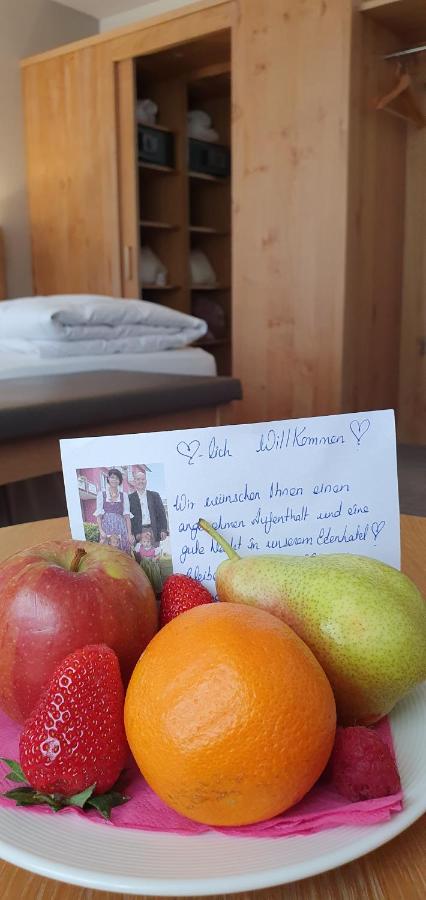 ♡-lich Willkommen ♡
Wir wünschen Ihnen einen
angenehmen Aufenthalt und eine
gute Nacht in unserem Edenhotel ♡